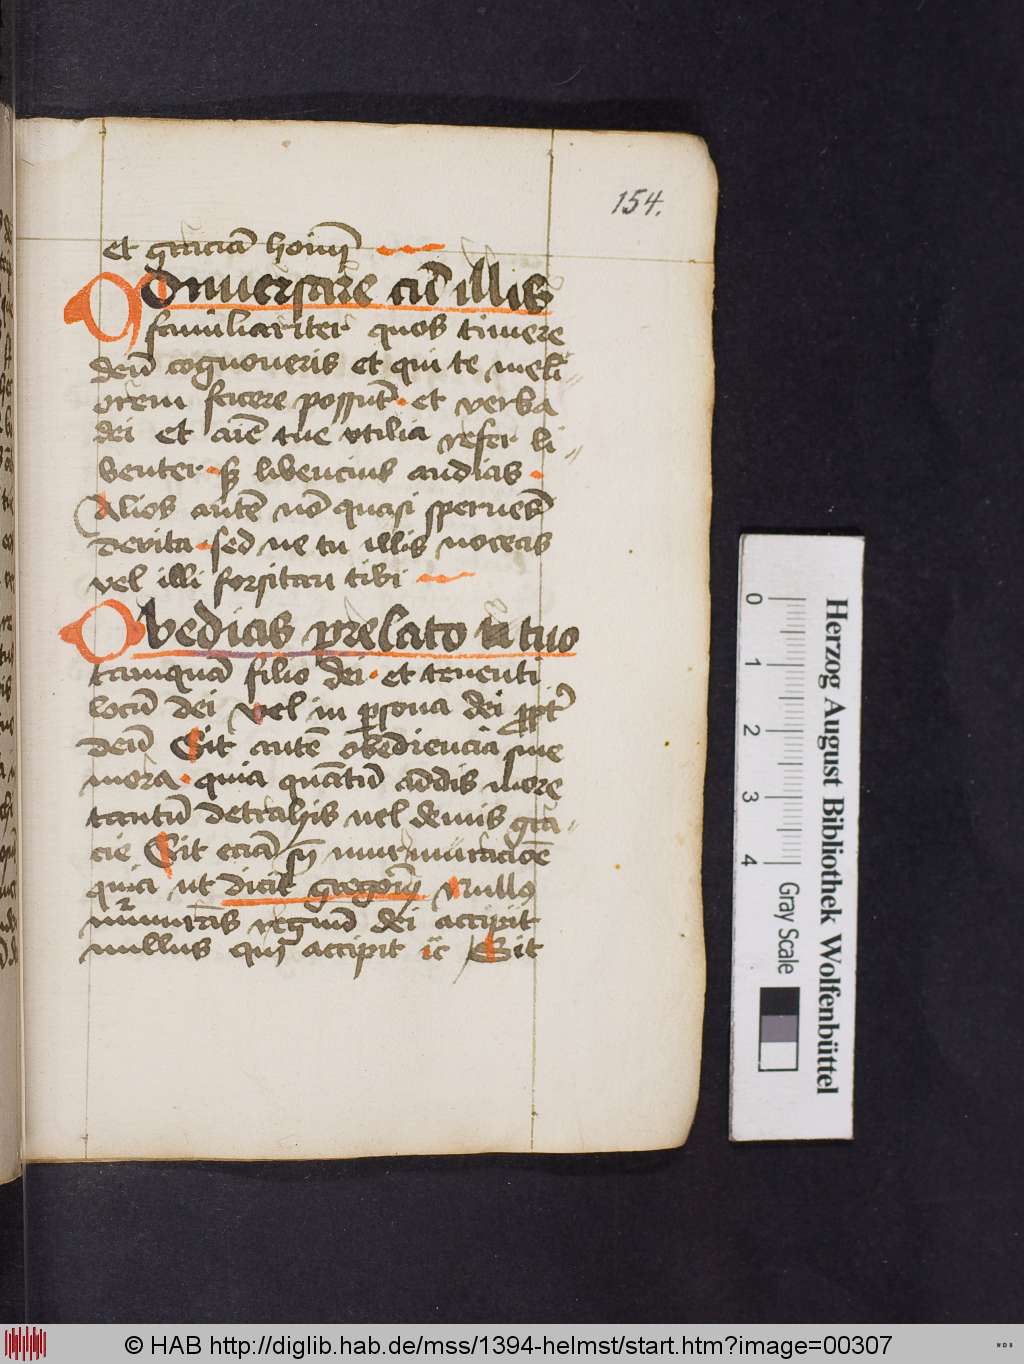 154.
et graciā homī
Conuersare cū illis
familiariter quos timere
deū cognoueris et qui te meli
orem facere possūt · et verba
dei et aīe tue vtilia refer li
benter · libencius audias ·
Alios autē nō quasi spernēs
derita · sed ne tu illis noceas
vel illi forsitan tibi
Obedias prelato tuo
tamquā filio dei · et tenenti
locū dei vel in persona dei
deū Sit autē obediencia sine
mora · quia quātū addis more
tantū detrahis vel demis gra
cie Sit eciā murmuracōe
quia ut dicit gregorī Nullus
murmurās regnū dei accipit
nullus qui accipit Sit
Herzog August Bibliothek Wolfenbüttel
0 1 2 3 4 Gray Scale
© HAB http://diglib.hab.de/mss/1394-helmst/start.htm?image=00307